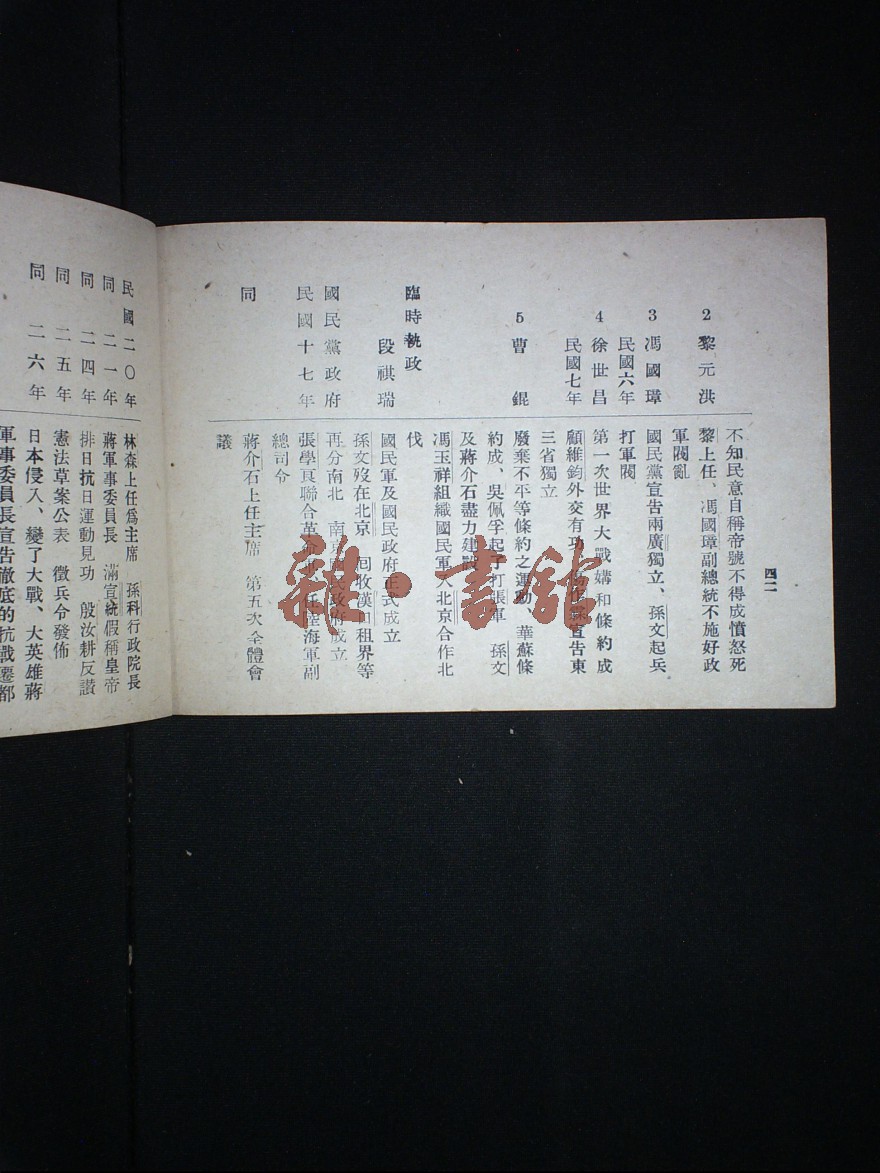 四二
不知民意自稱帝號不得成憤怒死
2 黎元洪 黎上任、馮國璋副總統不施好政
軍閥亂
3 馮國璋 國民黨宣告兩廣獨立、孫文起兵
民國六年 打軍閥
4 徐世昌 第一次世界大戰媾和條約成
民國七年 顧維鈞外交有功 作霖宣告東
三省獨立
5 曹錕 廢棄不平等條約之運動、華蘇條
約成、吳佩孚起了打張軍 孫文
及蔣介石盡力建設
馮玉祥組織國民軍入北京合作北
臨時執政 伐
段祺瑞 國民軍及國民政府正式成立
孫文歿在北京 回收漢口租界等
國民黨政府 再分南北 南京政府成立
民國十七年 張學良聯合革 任陸海軍副
總司令
同 蔣介石上任主席 第五次全體會
議
民國二〇年 林森上任爲主席 孫科行政院長
同 二一年 蔣軍事委員長 滿宣統假稱皇帝
同 二四年 排日抗日運動見功 殷汝耕反讚
同 二五年 憲法草案公表 徵兵令發佈
同 二六年 日本侵入、變了大戰、大英雄蔣
軍事委員長宣告徹底的抗戰遷都
雜·書館